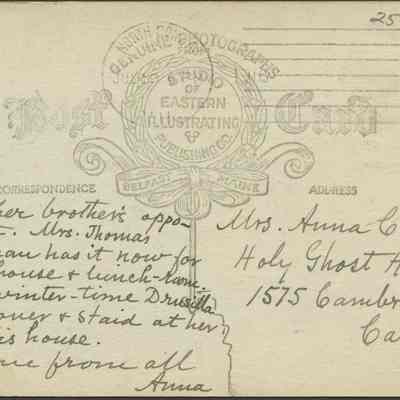 25
GENUINE PHOTOGRAPHS
FROM
STUDIO
OF
EASTERN
ILLUSTRATING
&
PUBLISHING CO.
Post Card
BELFAST MAINE
CORRESPONDENCE
ADDRESS
her brother's oppo-
Mrs. Thomas
has it now for
house & lunch-room.
winter-time Drusilla
over & staid at her
is house.
from all
Anna
Mrs. Anna C
Holy Ghost H
1575 Cambr
Ca